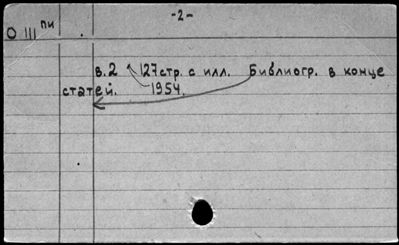 -2-
О III пи
в.2 127 стр. с илл. Библиогр. в конце
статей. 1954.